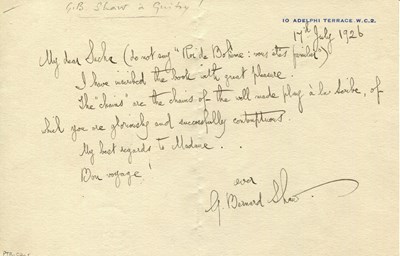 G.B Shaw à Guitry
10 ADELPHI TERRACE. W.C.2.
17th July 1926
My dear Sacha (do not say "Roi de Bohème: vous êtes
I have inscribed the book with great pleasure.
The "chains" are the chains of the well made play à la Scribe, of
which you are gloriously and successfully contemptuous.
My best regards to Madame.
Bon voyage!
ever
G. Bernard Shaw.